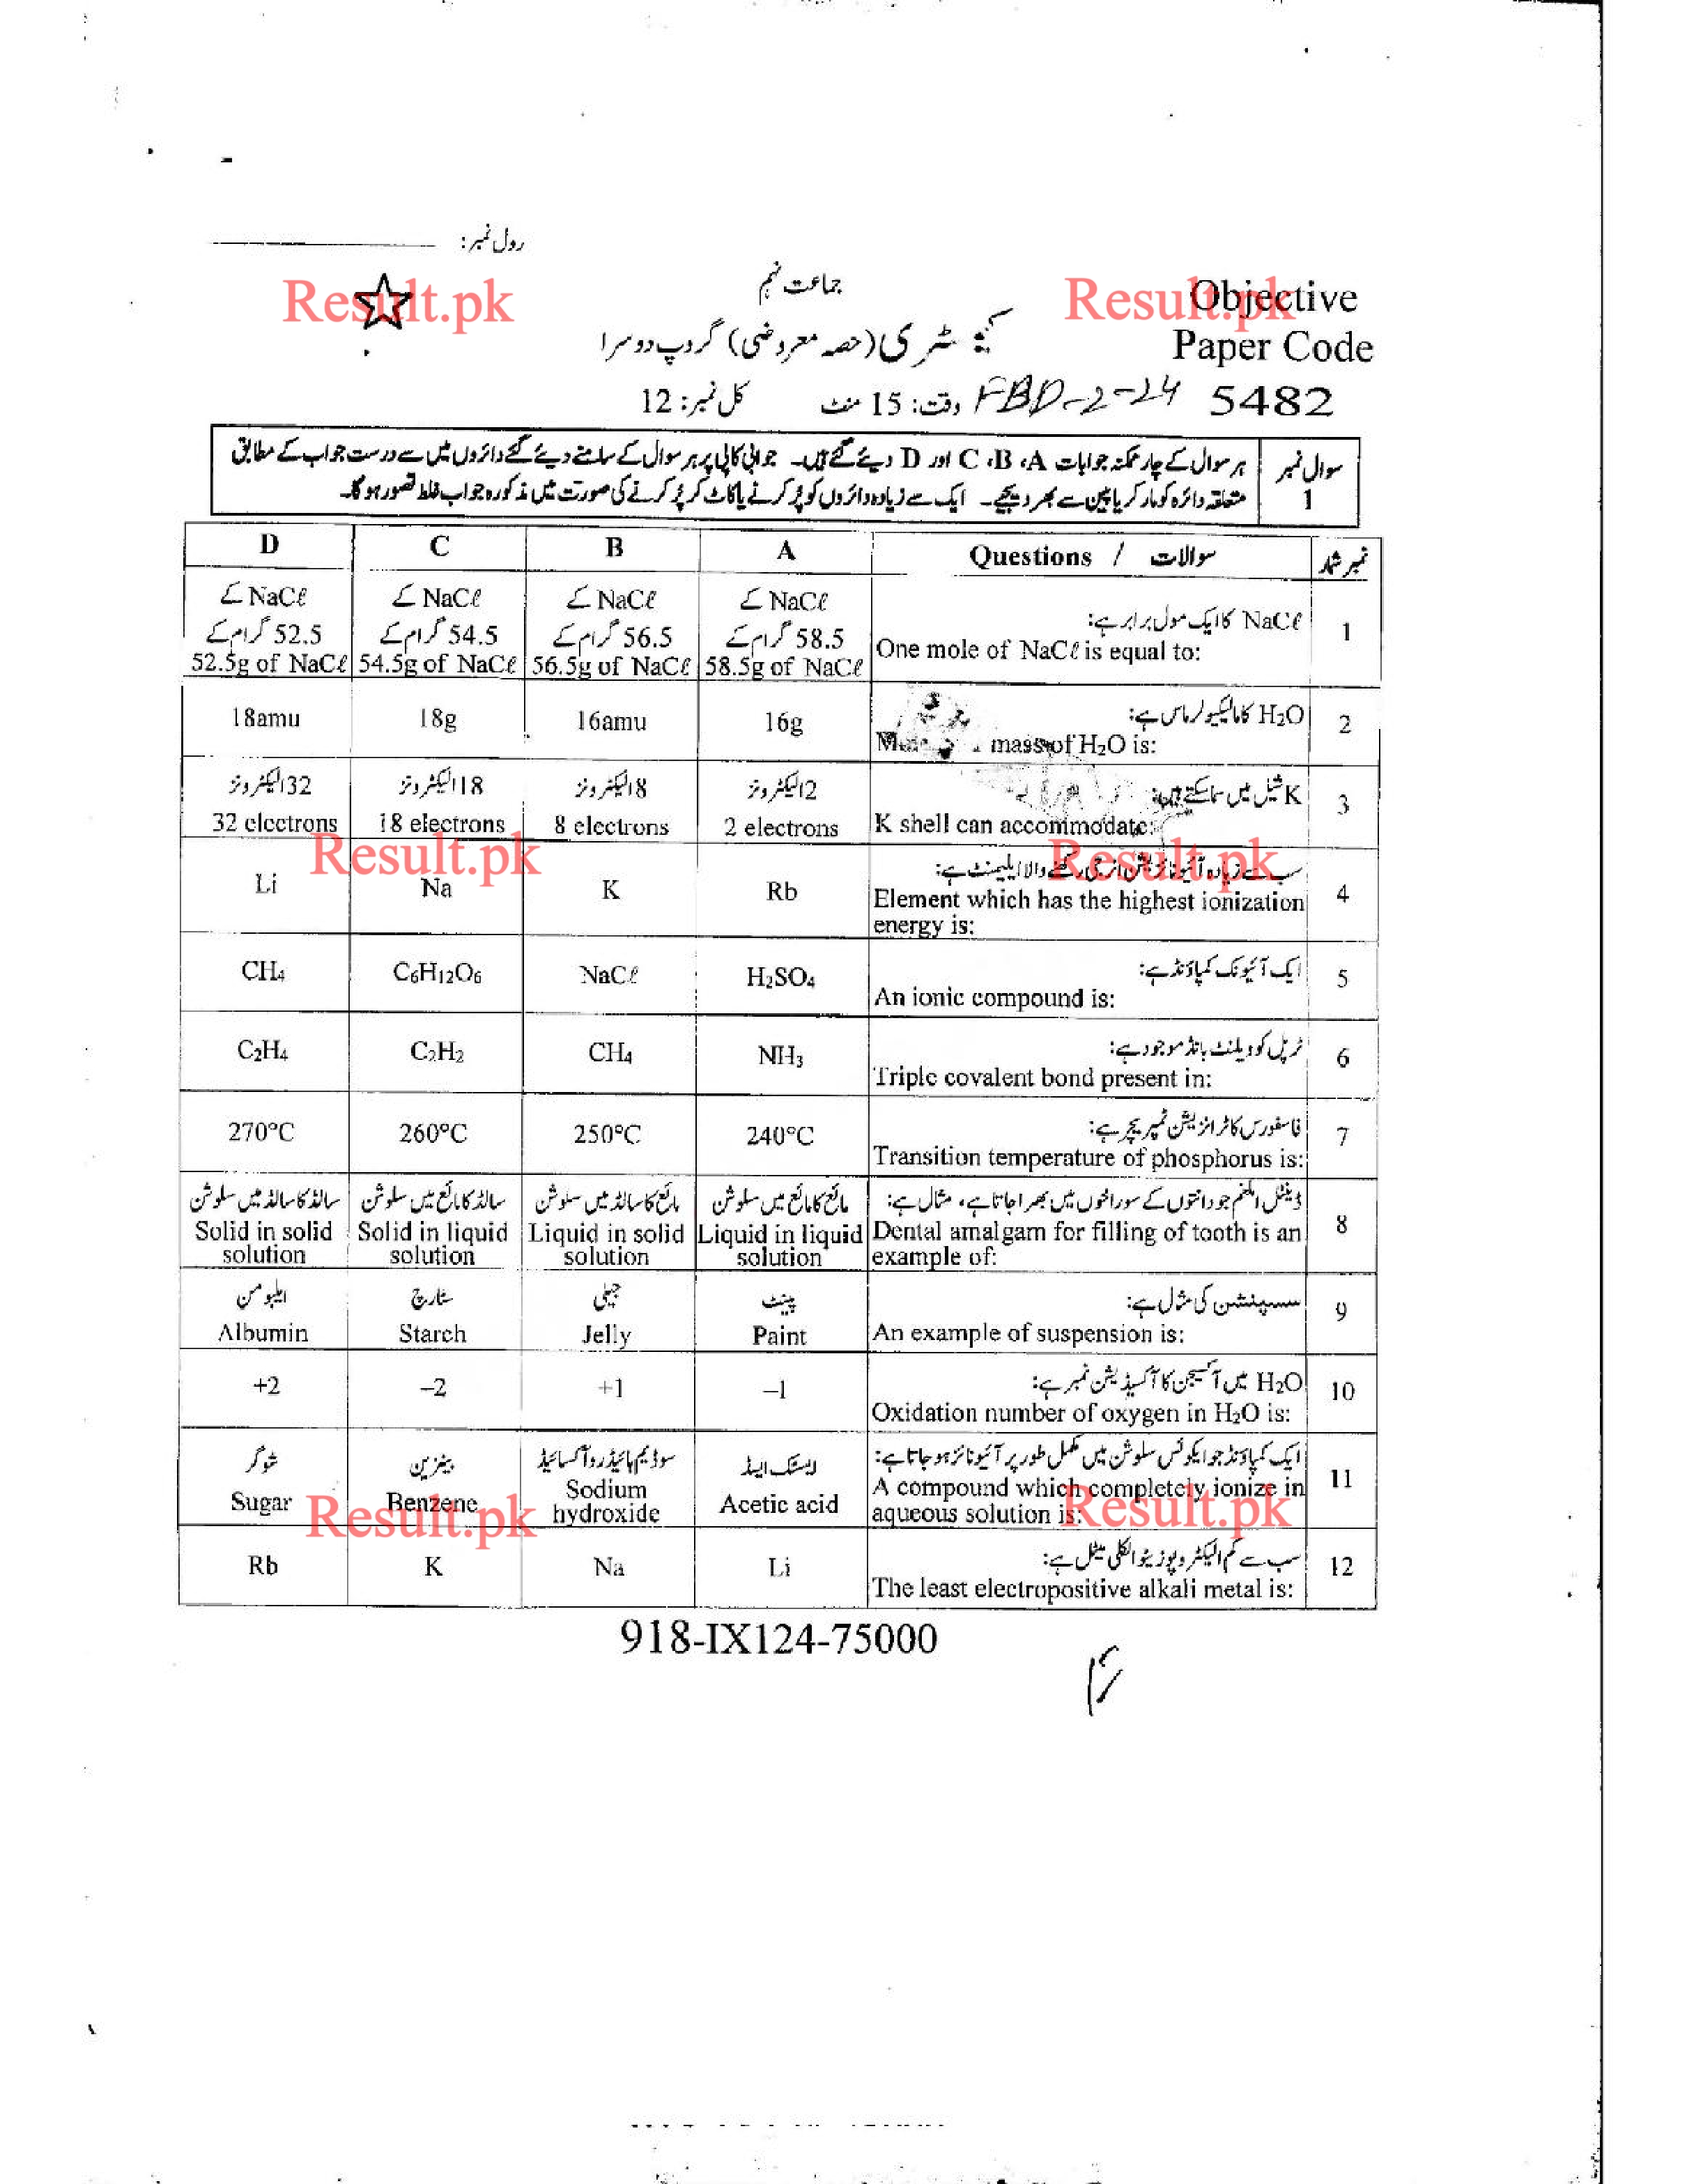 رول نمبر:
جماعت نہم
Objective
Paper Code
کیمسٹری (حصہ معروضی) گروپ دوسرا
5482
FBD-2-24
وقت: 15 منٹ
کل نمبر: 12
سوال نمبر 1
ہر سوال کے چار ممکنہ جوابات A ،B ،C اور D دیئے گئے ہیں۔ جوابی کاپی پر ہر سوال کے سامنے دیئے گئے دائروں میں سے درست جواب کے مطابق
متعلقہ دائرہ کو مارکر یا پین سے بھر دیجیے۔ ایک سے زیادہ دائروں کو پُر کرنے یا کاٹ کر پُر کرنے کی صورت میں مذکورہ جواب غلط تصور ہوگا۔
نمبر شمار
Questions / سوالات
A
B
C
D
1
NaCℓ کا ایک مول برابر ہے:
One mole of NaCℓ is equal to:
NaCℓ کے
58.5 گرام کے
58.5g of NaCℓ
NaCℓ کے
56.5 گرام کے
56.5g of NaCℓ
NaCℓ کے
54.5 گرام کے
54.5g of NaCℓ
NaCℓ کے
52.5 گرام کے
52.5g of NaCℓ
2
H₂O کا مالیکیولر ماس ہے:
mass of H₂O is:
16g
16amu
18g
18amu
3
K شیل میں سما سکتے ہیں:
K shell can accommodate:
2 الیکٹرونز
2 electrons
8 الیکٹرونز
8 electrons
18 الیکٹرونز
18 electrons
32 الیکٹرونز
32 electrons
4
سب سے زیادہ آئیونائزیشن انرجی رکھنے والا ایلیمنٹ ہے:
Element which has the highest ionization
energy is:
Rb
K
Na
Li
5
ایک آئیونک کمپاؤنڈ ہے:
An ionic compound is:
H₂SO₄
NaCℓ
C₆H₁₂O₆
CH₄
6
ٹرپل کوویلنٹ بانڈ موجود ہے:
Triple covalent bond present in:
NH₃
CH₄
C₂H₂
C₂H₄
7
فاسفورس کا ٹرانزیشن ٹمپریچر ہے:
Transition temperature of phosphorus is:
240°C
250°C
260°C
270°C
8
ڈینٹل املغم جو دانتوں کے سوراخوں میں بھرا جاتا ہے، مثال ہے:
Dental amalgam for filling of tooth is an
example of:
مائع کا مائع میں سلوشن
Liquid in liquid
solution
مائع کا سالڈ میں سلوشن
Liquid in solid
solution
سالڈ کا مائع میں سلوشن
Solid in liquid
solution
سالڈ کا سالڈ میں سلوشن
Solid in solid
solution
9
سسپنشن کی مثال ہے:
An example of suspension is:
پینٹ
Paint
جیلی
Jelly
سٹارچ
Starch
ایلبومن
Albumin
10
H₂O میں آکسیجن کا آکسیڈیشن نمبر ہے:
Oxidation number of oxygen in H₂O is:
–1
+1
–2
+2
11
ایک کمپاؤنڈ جو ایکوئس سلوشن میں مکمل طور پر آئیونائز ہو جاتا ہے:
A compound which completely ionize in
aqueous solution is:
ایسٹک ایسڈ
Acetic acid
سوڈیم ہائیڈروآکسائیڈ
Sodium
hydroxide
بینزین
Benzene
شوگر
Sugar
12
سب سے کم الیکٹروپوزیٹو الکلی میٹل ہے:
The least electropositive alkali metal is:
Li
Na
K
Rb
918-IX124-75000
Result.pk
Result.pk
Result.pk
Result.pk
Result.pk
Result.pk